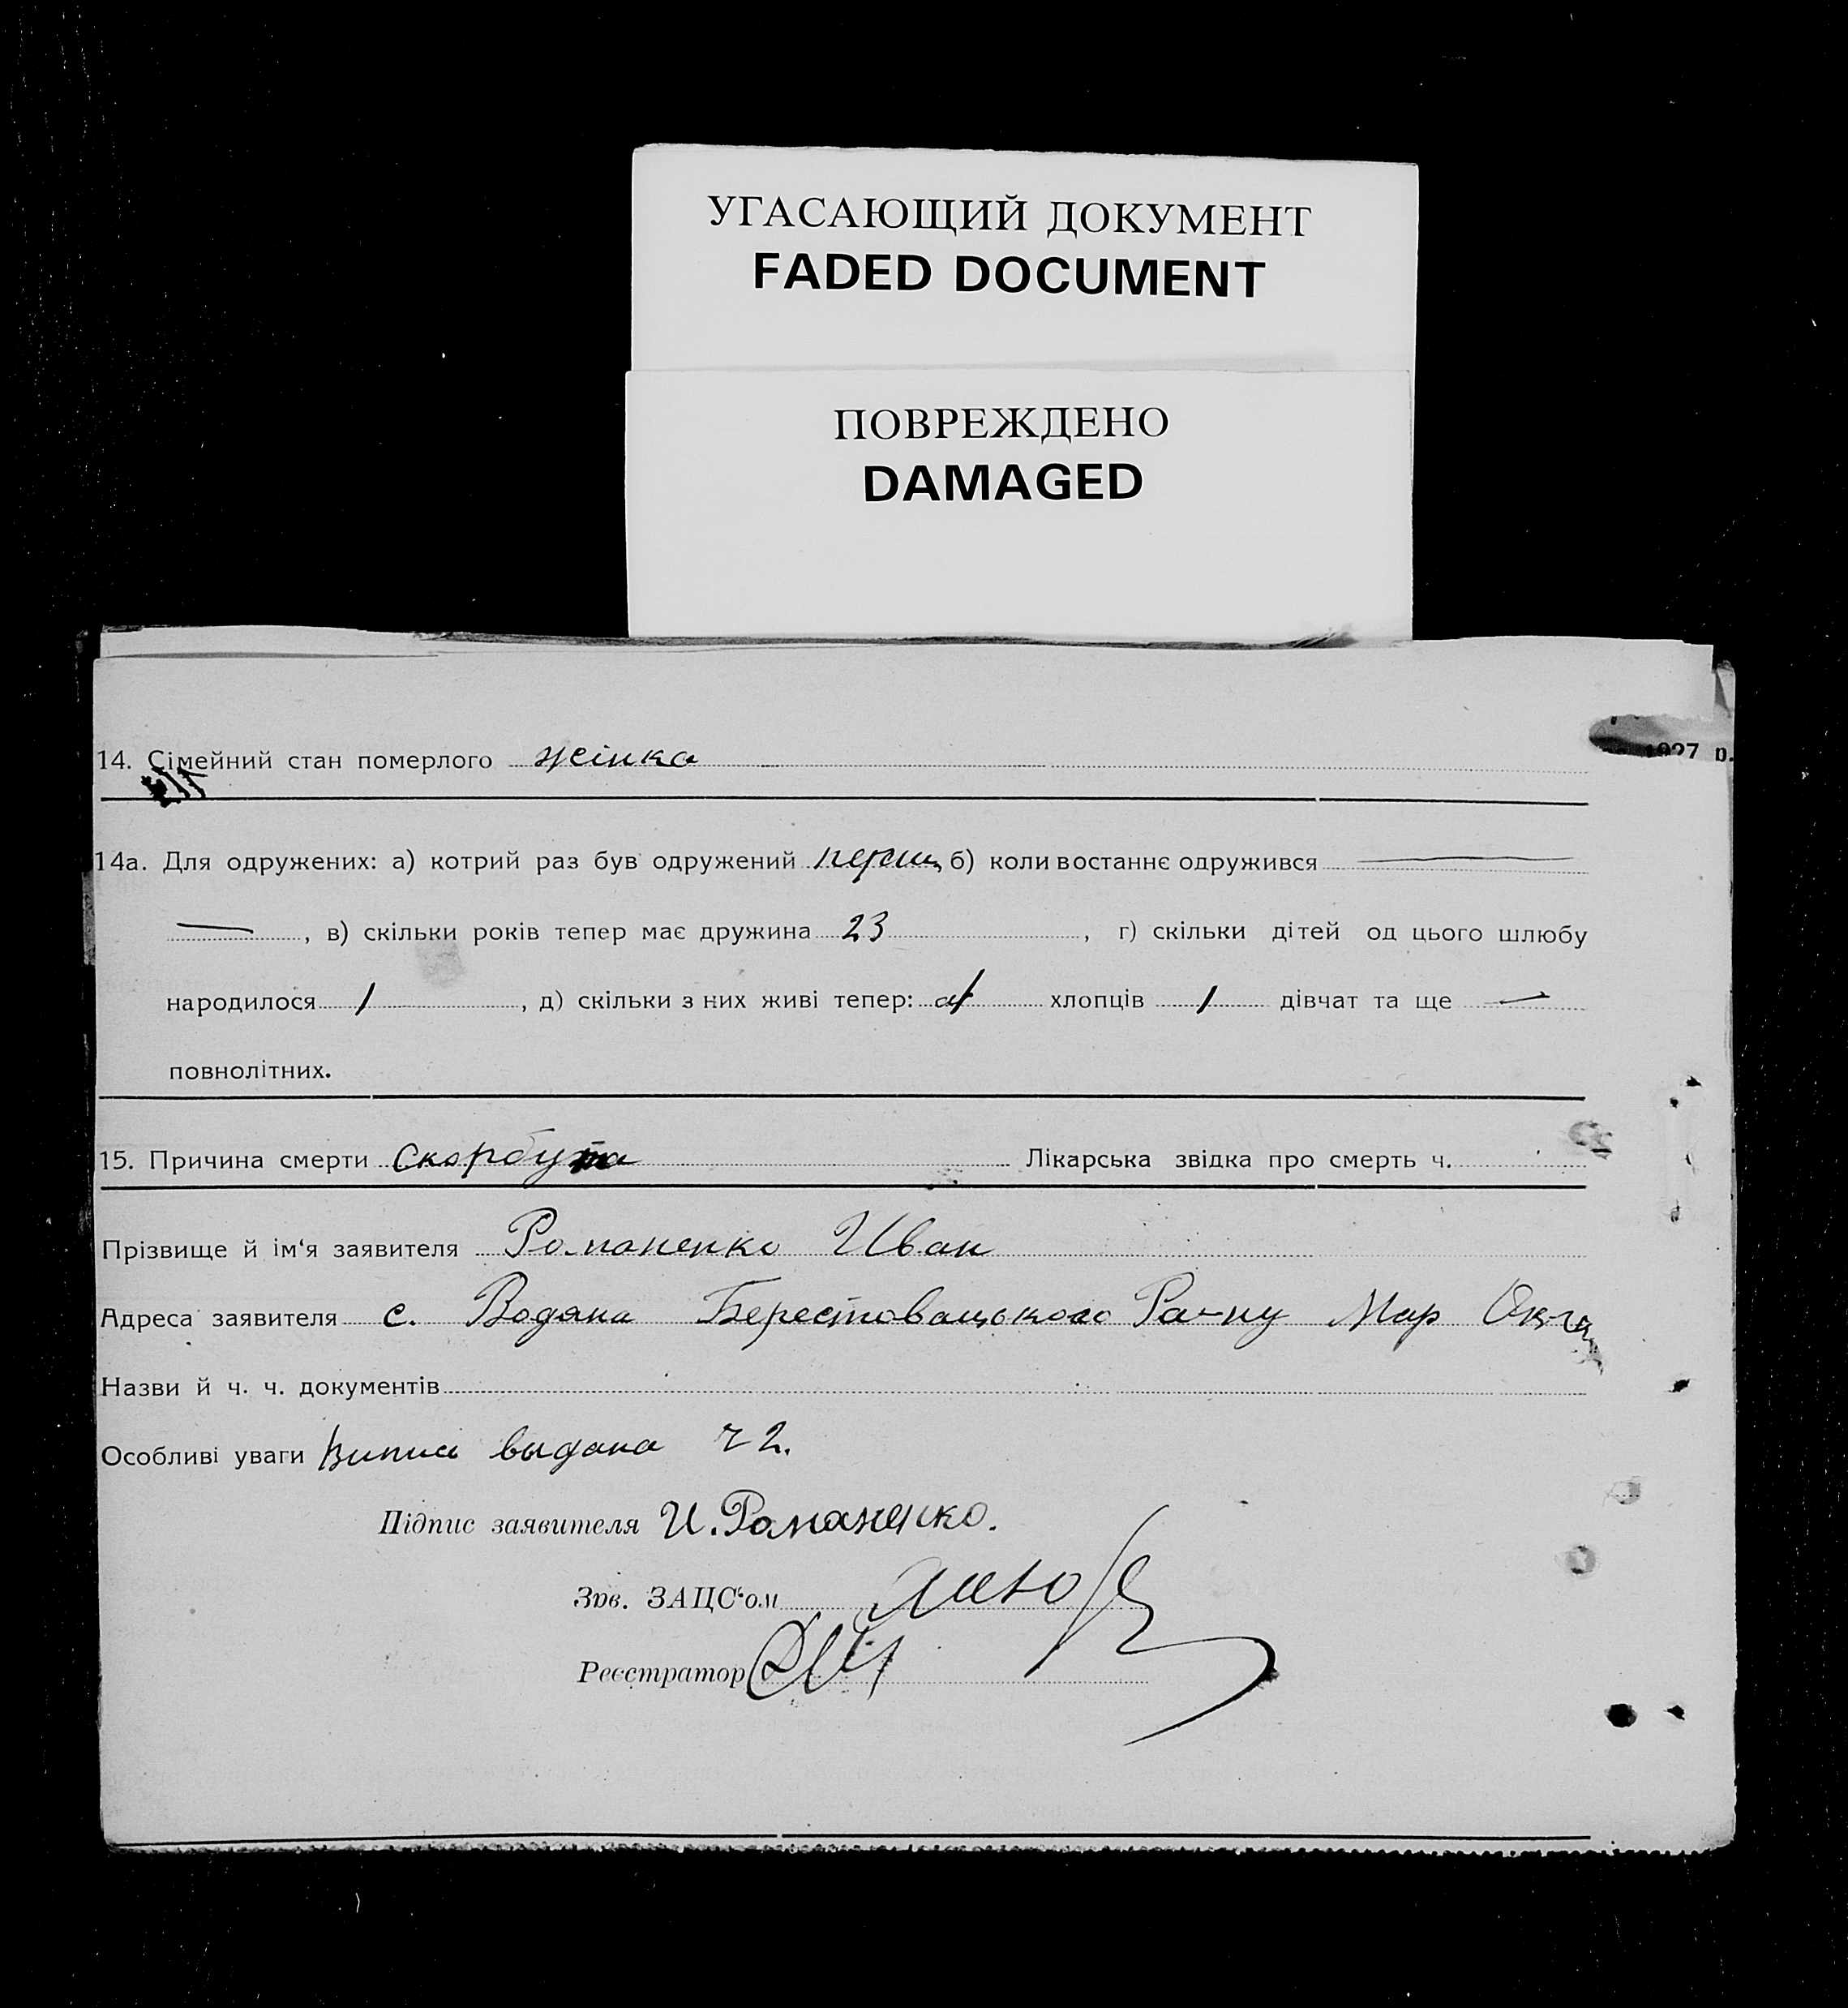 УГАСАЮЩИЙ ДОКУМЕНТ
FADED DOCUMENT
ПОВРЕЖДЕНО
DAMAGED
1927 р.
14. Сімейний стан померлого жінка
14а. Для одружених: а) котрий раз був одружений перш, б) коли востаннє одружився —
—, в) скільки років тепер має дружина 23, г) скільки дітей од цього шлюбу
народилося 1, д) скільки з них живі тепер: хлопців 1 дівчат та ще —
повнолітних.
15. Причина смерти Скорбута Лікарська звідка про смерть ч.
Прізвище й ім‘я заявителя Романенко Иван
Адреса заявителя с. Водяна Берестовацького Ра-ну Мар Окр
Назви й ч. ч. документів
Особливі уваги Випис выдана ч 2.
Підпис заявителя И. Романенко.
Зав. ЗАЦС‘ом
Реєстратор